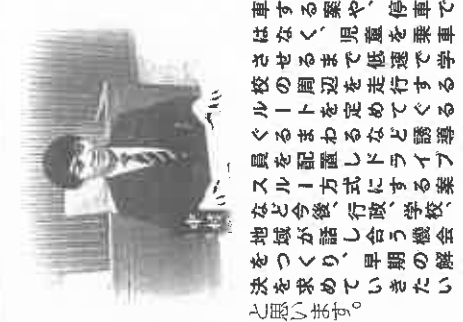 車する案や、停車で
はなく、児童を乗車
させるまで低速で学
校の周辺を走行する
ルートを定めてぐる
ぐるまわるなど誘導
員を配置しドライブ
スルー方式にする案
など今後、行政、学校、
地域が話し合う機会
をつくり、早期の解
決を求めていきたい
と思います。